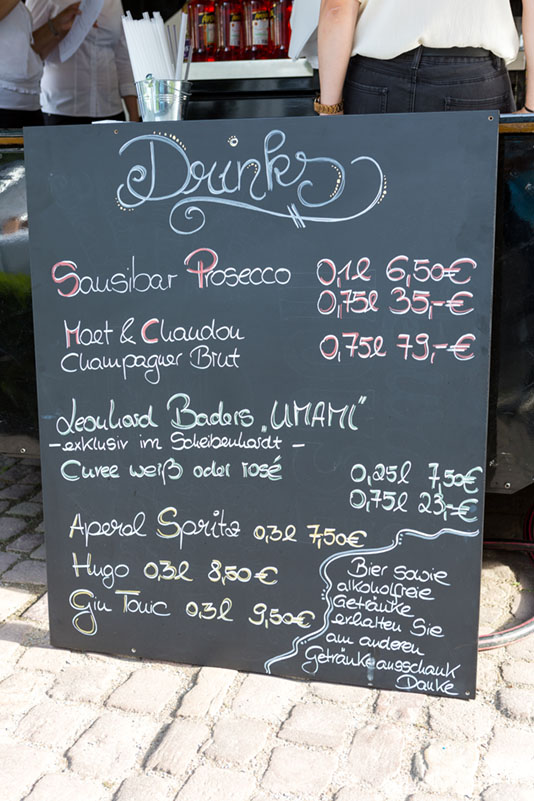 Drinks
Sausibar Prosecco 0,1l 6,50€
0,75l 35,-€
Moet & Chandon 0,75l 79,-€
Champagner Brut
Leonhard Baders „UMAMI“
- exklusiv im Scheibenhardt -
Cuvee weiß oder rosé 0,25l 7,50€
0,75l 23,-€
Aperol Spritz 0,3l 7,50€
Hugo 0,3l 8,50€
Gin Tonic 0,3l 9,50€
Bier sowie
alkoholfreie
Getränke
erhalten Sie
am anderen
Getränkeausschank
Danke